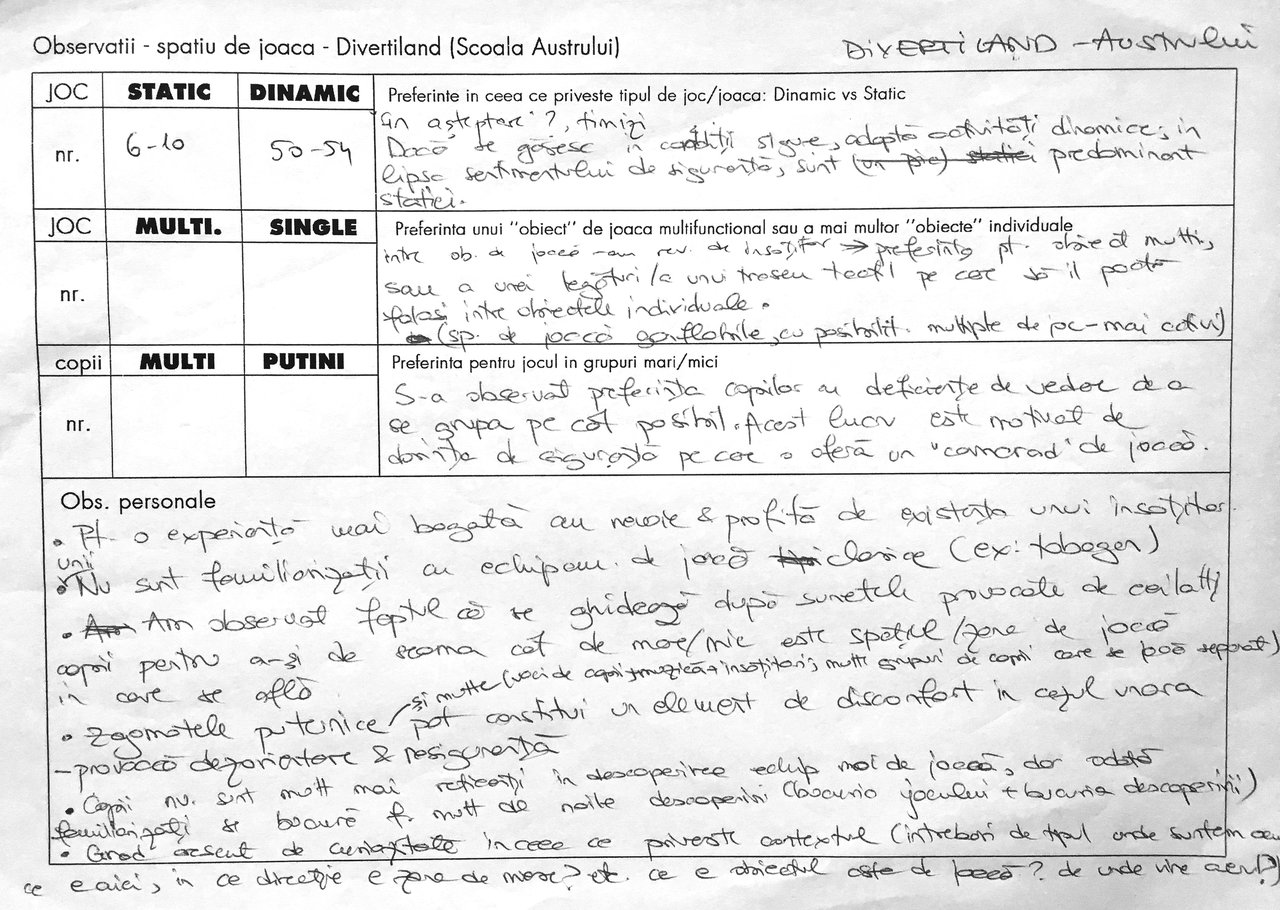 Observatii - spatiu de joaca - Divertiland (Scoala Austrului)
DIVERTILAND - Austrului
JOC STATIC DINAMIC Preferinte in ceea ce priveste tipul de joc/joaca: Dinamic vs Static
nr. 6-10 50-54
În așteptare ?, timizi
Dacă se găsesc în condiții sigure, adoptă activități dinamice; în
lipsa sentimentului de siguranță, sunt (un pic) statici predominant
statici.
JOC MULTI. SINGLE Preferinta unui "obiect" de joaca multifunctional sau a mai multor "obiecte" individuale
nr.
între ob. de joacă - au nev. de însoțitor → preferința pt. obiect multi,
sau a unei legături/a unui traseu tactil pe care să îl poată
folosi între obiectele individuale.
(sp. de joacă gonflabile, cu posibilit. multiple de joc - mai activi)
copii MULTI PUTINI Preferinta pentru jocul in grupuri mari/mici
nr.
S-a observat preferința copiilor cu deficiențe de vedere de a
se grupa pe cât posibil. Acest lucru este motivat de
dorința de siguranță pe care o oferă un "camarad" de joacă.
Obs. personale
• Pt. o experiență mai bogată au nevoie & profită de existența unui însoțitor.
unii
• Nu sunt familiarizații cu echipam. de joacă clasice (ex: tobogan)
• Am Am observat faptul că se ghidează după sunetele provocate de ceilalți
copii pentru a-și da seama cât de mare/mic este spațiul/zona de joacă
în care se află.
și multe (voci de copii + muzică + însoțitori; multe grupuri de copii care se joacă separat)
• zgomotele puternice / pot constitui un element de disconfort în cazul unora
- provocă dezorientare & nesiguranță
• Copii nv. sunt mult mai reticenți în descoperirea echip noi de joacă, dar odată
familiarizați se bucură f. mult de noile descoperiri (bucuria jocului + bucuria descoperirii)
• Grad crescut de curiozitate în ceea ce privește contextul (întrebări de tipul unde suntem acu
ce e aici, în ce direcție e zona de mers? etc. ce e obiectul ăsta de joacă? de unde vine aerul?)